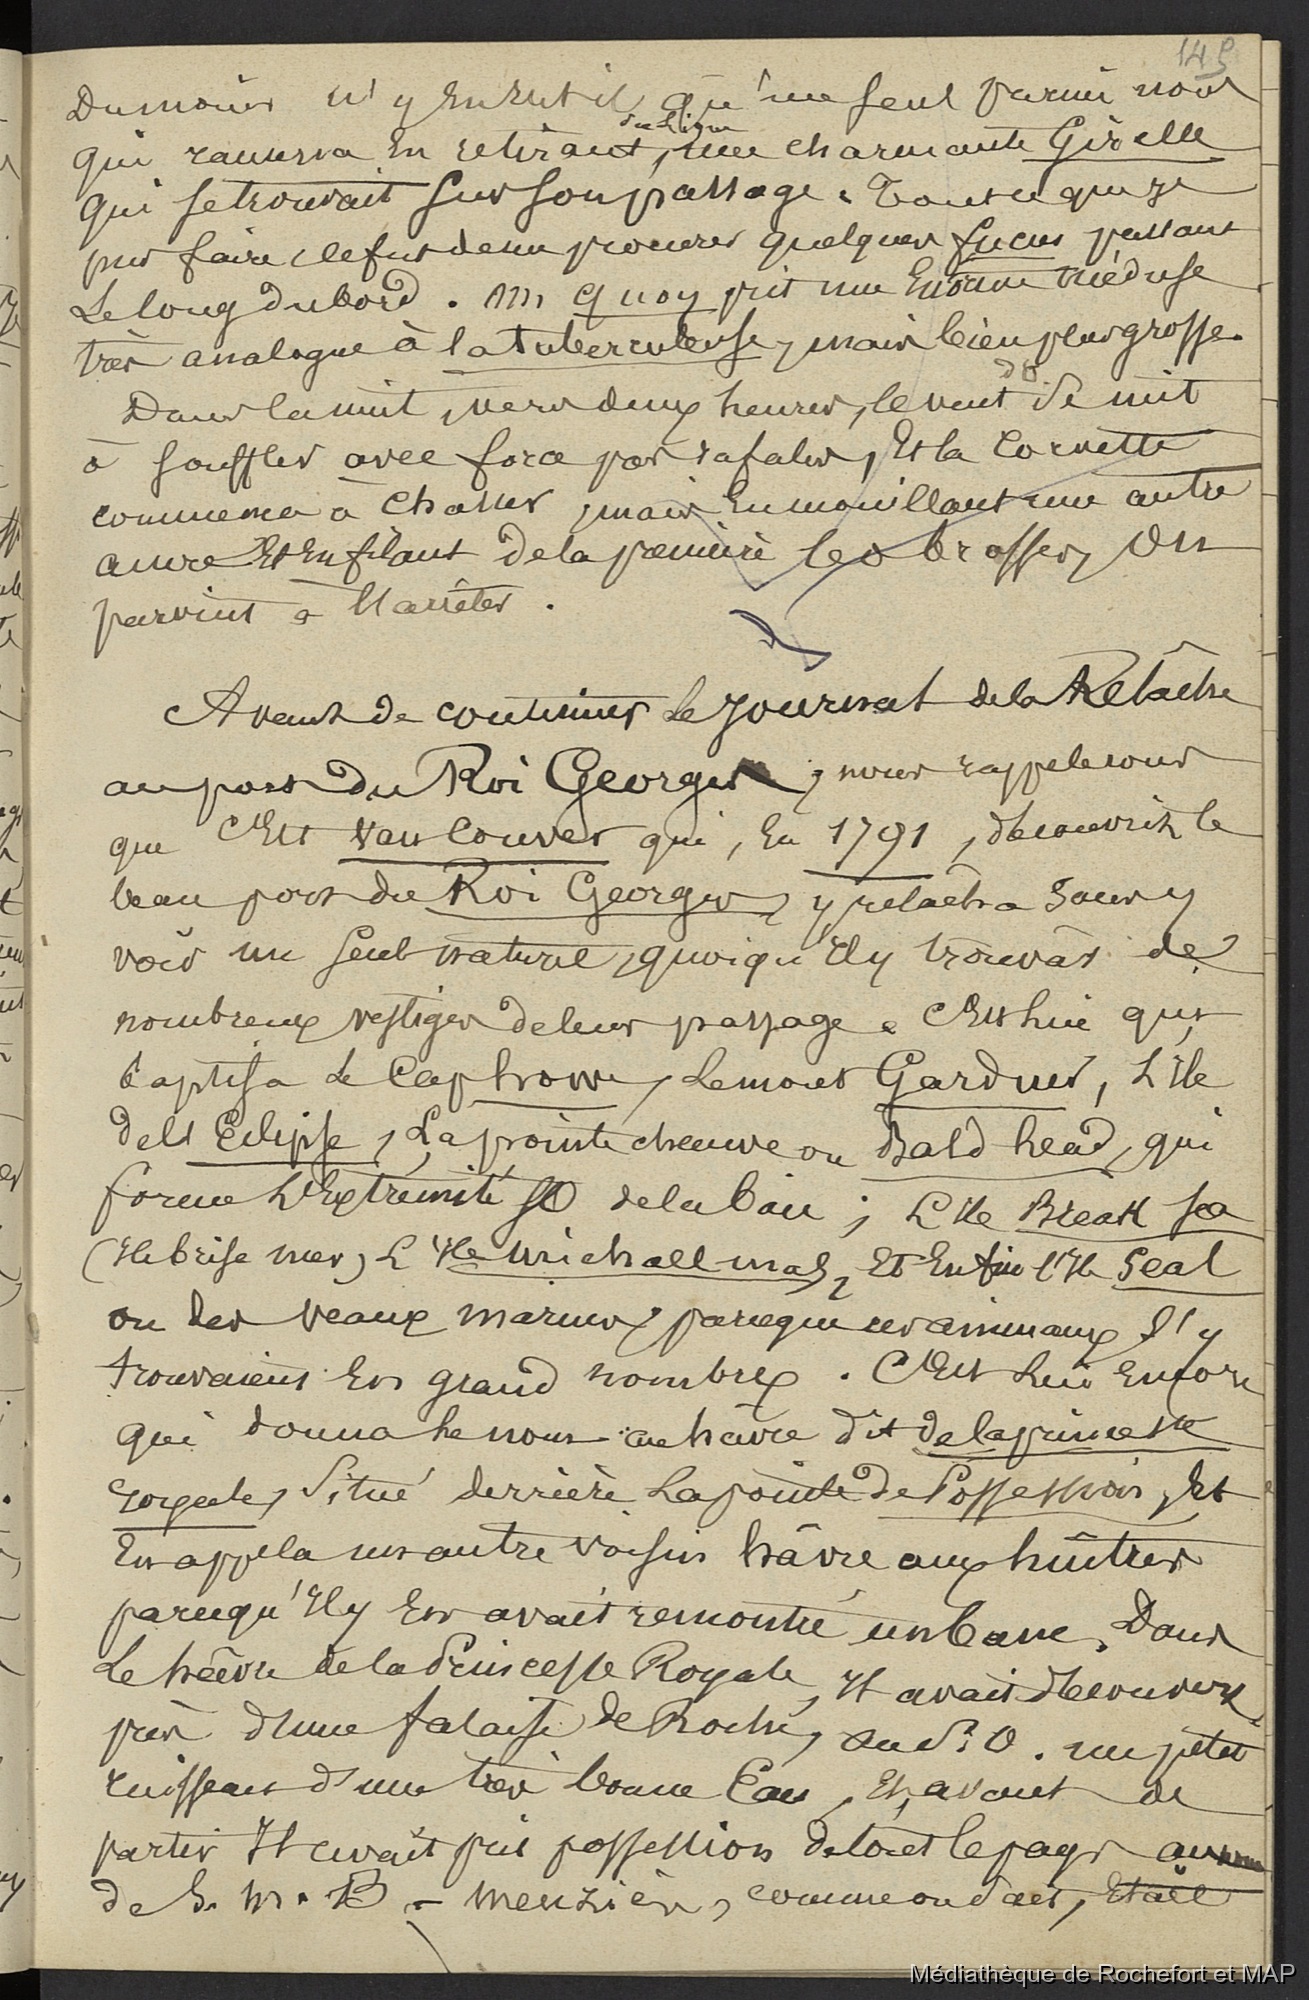 145
Du moins n'y en eut il qu'un seul parmi nous
qui ramena en retirant sa ligne, une charmante Girelle
qui se trouvait sur son passage. Tout ce que je
pus faire, le fut de me procurer quelques fucus passant
Le long du bord. Mr Quoy prit une Enorme méduse
très analogue à la tuberculeuse, mais bien plus grosse.
Dans la nuit, vers deux heures, le vent d'O. Se mit
à souffler avec force par rafales, Et la Corvette
commença à chasser, mais En mouillant une autre
ancre Et En filant de la première les brasses, On
parvint à l'arrêter.
Avant de continuer Le journal de la Relâche
au port du Roi Georges, nous rappelerons
que C'Est Vancouver qui, En 1791, découvrit le
beau port du Roi Georges, y relacha sans y
voir un seul naturel, quoiqu'Il y trouvât de
nombreux vestiges de leur passage. C'Est lui qui
baptisa le Cap howe, Le mont Gardner, L'Ile
de l'Eclipse, La pointe chauve ou Bald head, qui
forme L'Extrémité SO de la baie; L'Ile Break sea
(Ile brise mer) L'Ile michaelmas, Et Enfin l'Ile Seal
ou des veaux marins, parceque ces animaux s'y
trouvaient En grand nombre. C'Est Lui Encore
qui donna le nom au hâvre dit de la princesse
royale, Situé derrière La pointe de Possession, Et
En appela un autre voisin hâvre aux huîtres
parcequ'Il y En avait rencontré un banc. Dans
Le hâvre de la Princesse Royale, Il avait découvert
près d'une falaise de Roche, au S.O. un petit
ruisseau d'une très bonne Eau, Et, avant de
partir Il avait pris possession de tout le pays au nom
de S. M. B. - Menziès, comme on sait, Etait
Médiathèque de Rochefort et MAP